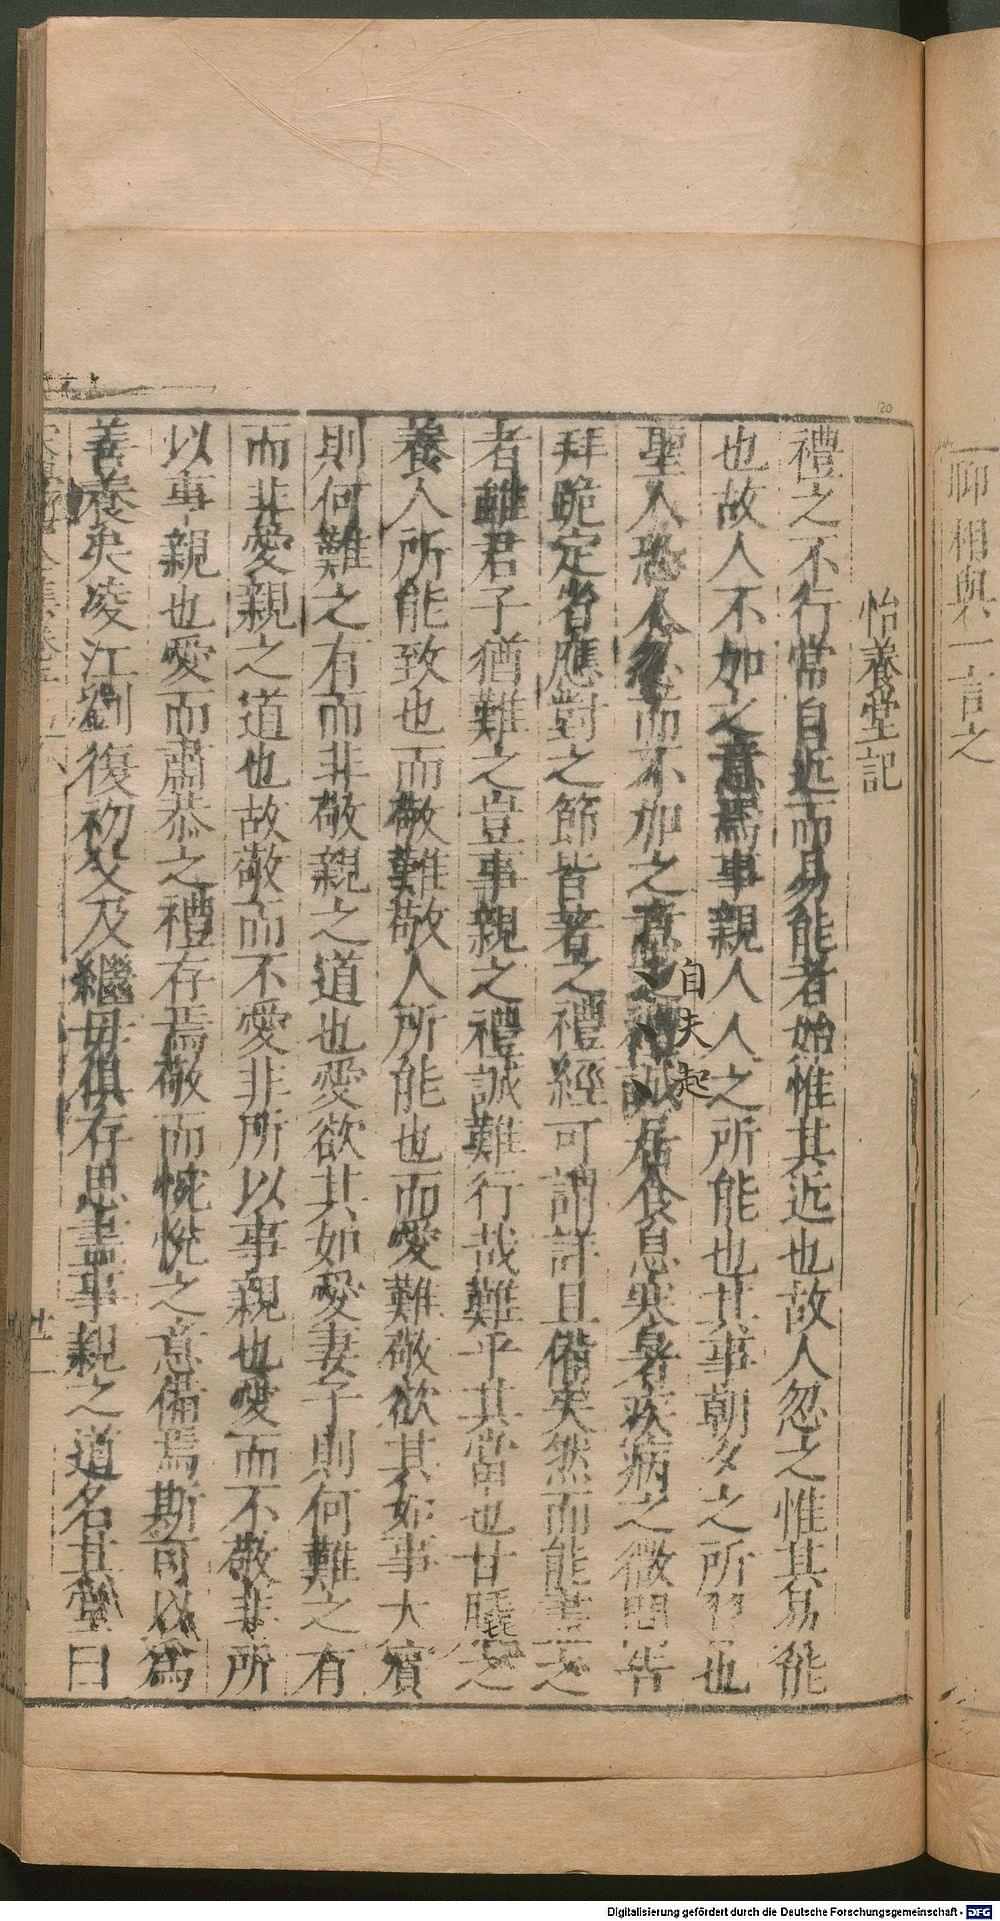 聊相與一言之
怡養堂記
禮之不行常自近而易能者始惟其近也故人忽之惟其易能
也故人不加之意焉事親人人之所能也其事朝夕之所也
聖人恐人忽而不加之意誠居食息寒暑疾病之微問告
自夫起
拜跪定省應對之節皆著之禮經可謂詳且備矣然而能盡之
者雖君子猶難之豈事親之禮誠難行哉難乎其當也甘之
養人所能致也而敬難敬人所能也而愛難敬欲其如事大賓
則何難之有而非敬親之道也愛欲其如愛妻子則何難之有
而非愛親之道也故敬而不愛非所以事親也愛而不敬非所
以事親也愛而肅恭之禮存焉敬而惋悅之意備焉斯可以爲
善養矣凌江劉復初父及繼母俱存思盡事親之道名其堂曰
120
Digitalisierung gefördert durch die Deutsche Forschungsgemeinschaft - DFG